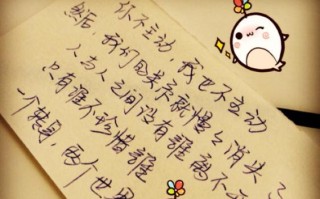 你不主动，我也不主动
然后，我们的关系就慢慢消失了
人与人之间没有誰離不开
只有谁不珍惜誰
一个转身，两个世界